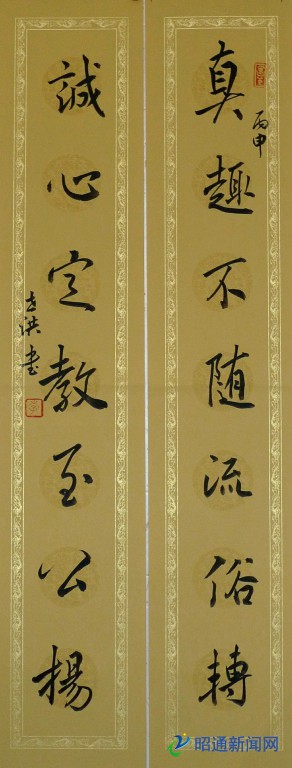 真趣不随流俗转
丙申
誠心定教至公揚
志洪书
昭通新闻网